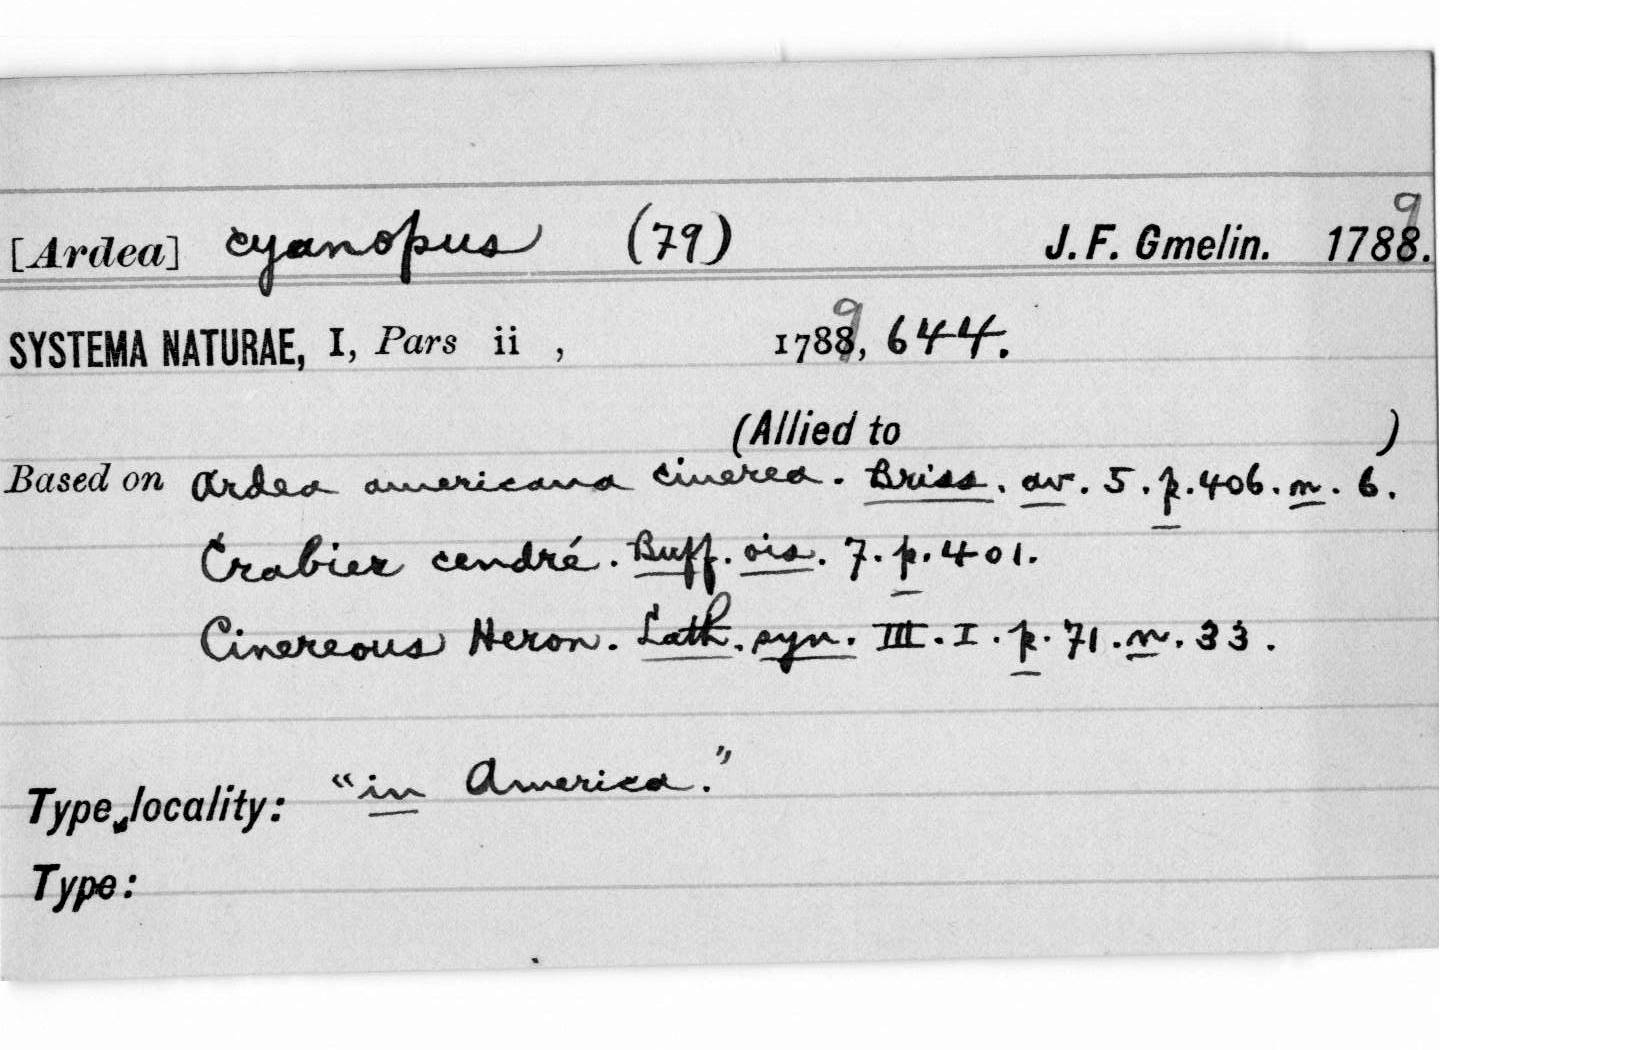 [Ardea] cyanopus (79) J. F. Gmelin. 1788. 9
SYSTEMA NATURAE, I, Pars ii , 1788 9, 644.
(Allied to )
Based on Ardea americana cinerea. Briss. av. 5. p. 406. n. 6.
Crabier cendré. Buff. ois. 7. p. 401.
Cinereous Heron. Lath. syn. III. I. p. 71. n. 33.
Type locality: "in America."
Type: